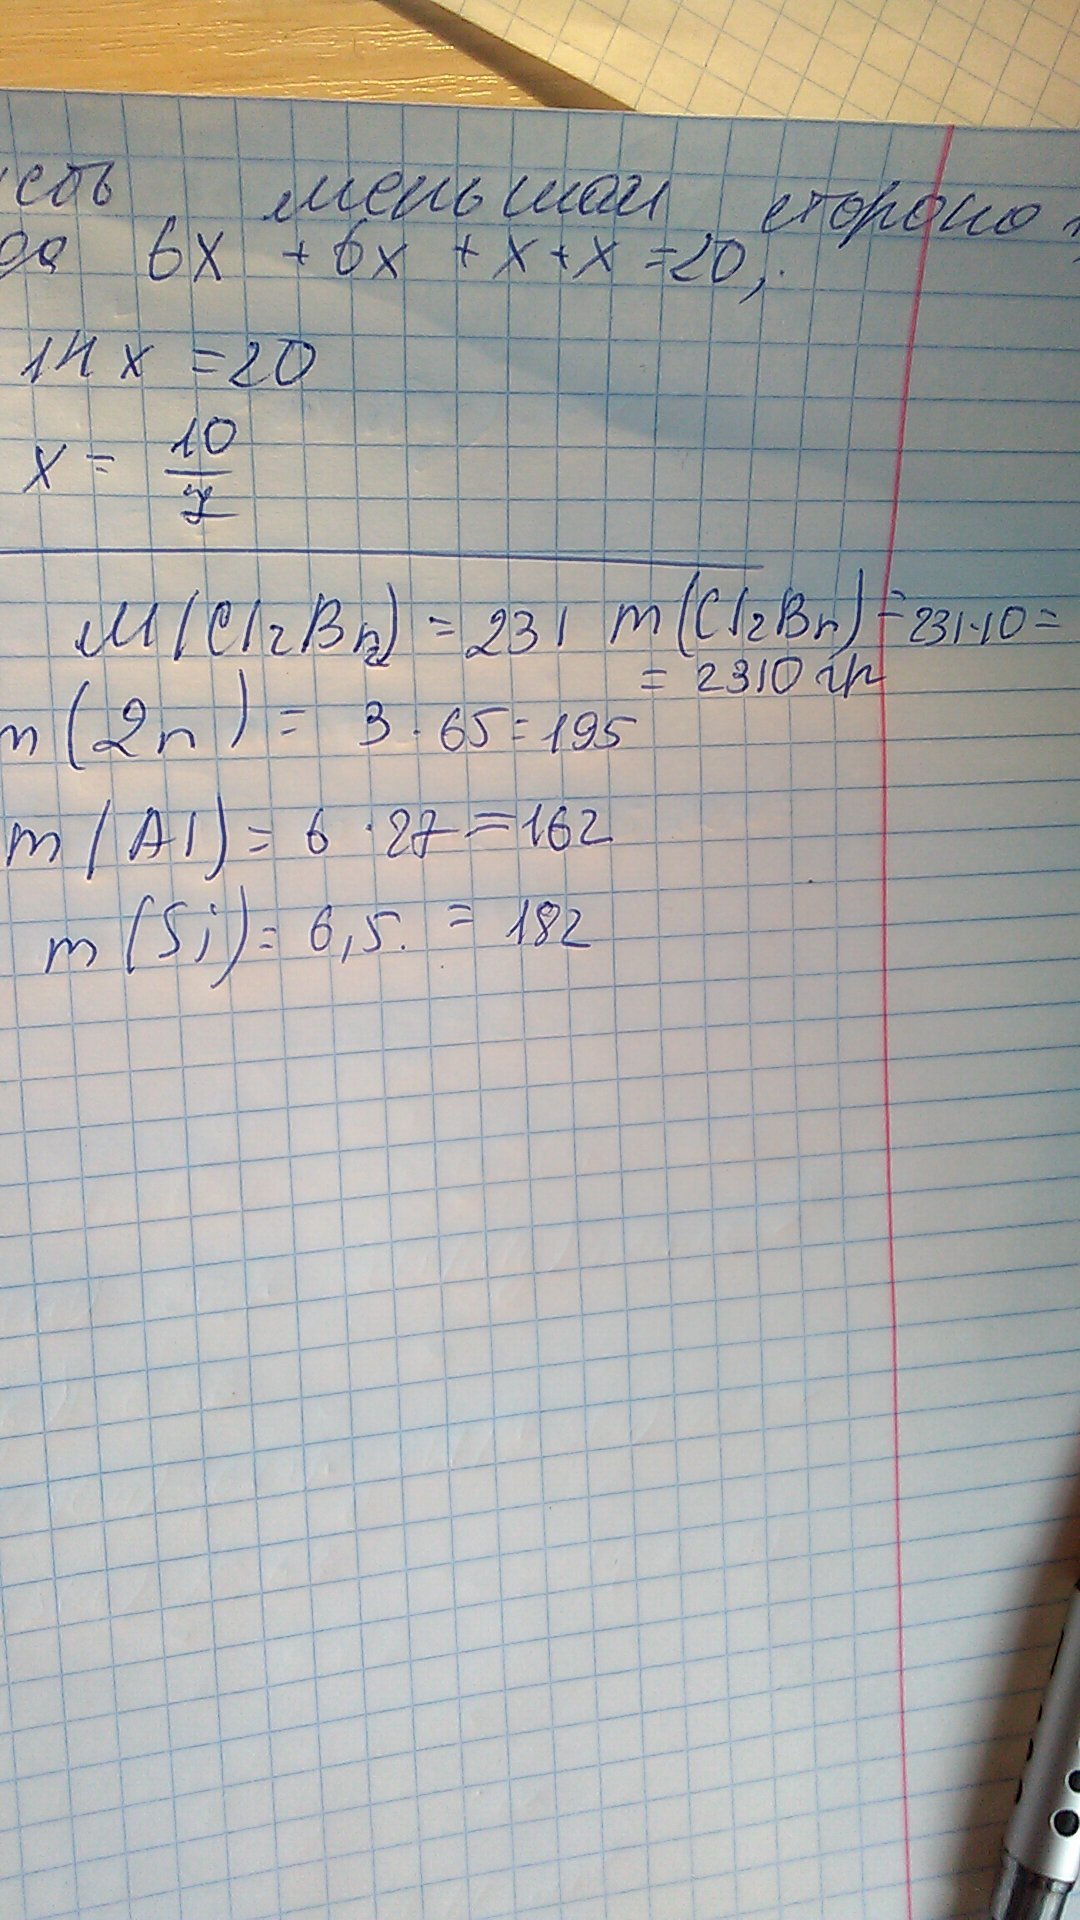 усть меньшая сторона
да 6x + 6x + x + x = 20,
14x = 20
x = 10/7
M(Cl₂Br₂) = 231 m(Cl₂Br) = 231·10 =
= 2310 гр
m(Zn) = 3 · 65 = 195
m(Al) = 6 · 27 = 162
m(Si) = 6,5. = 182